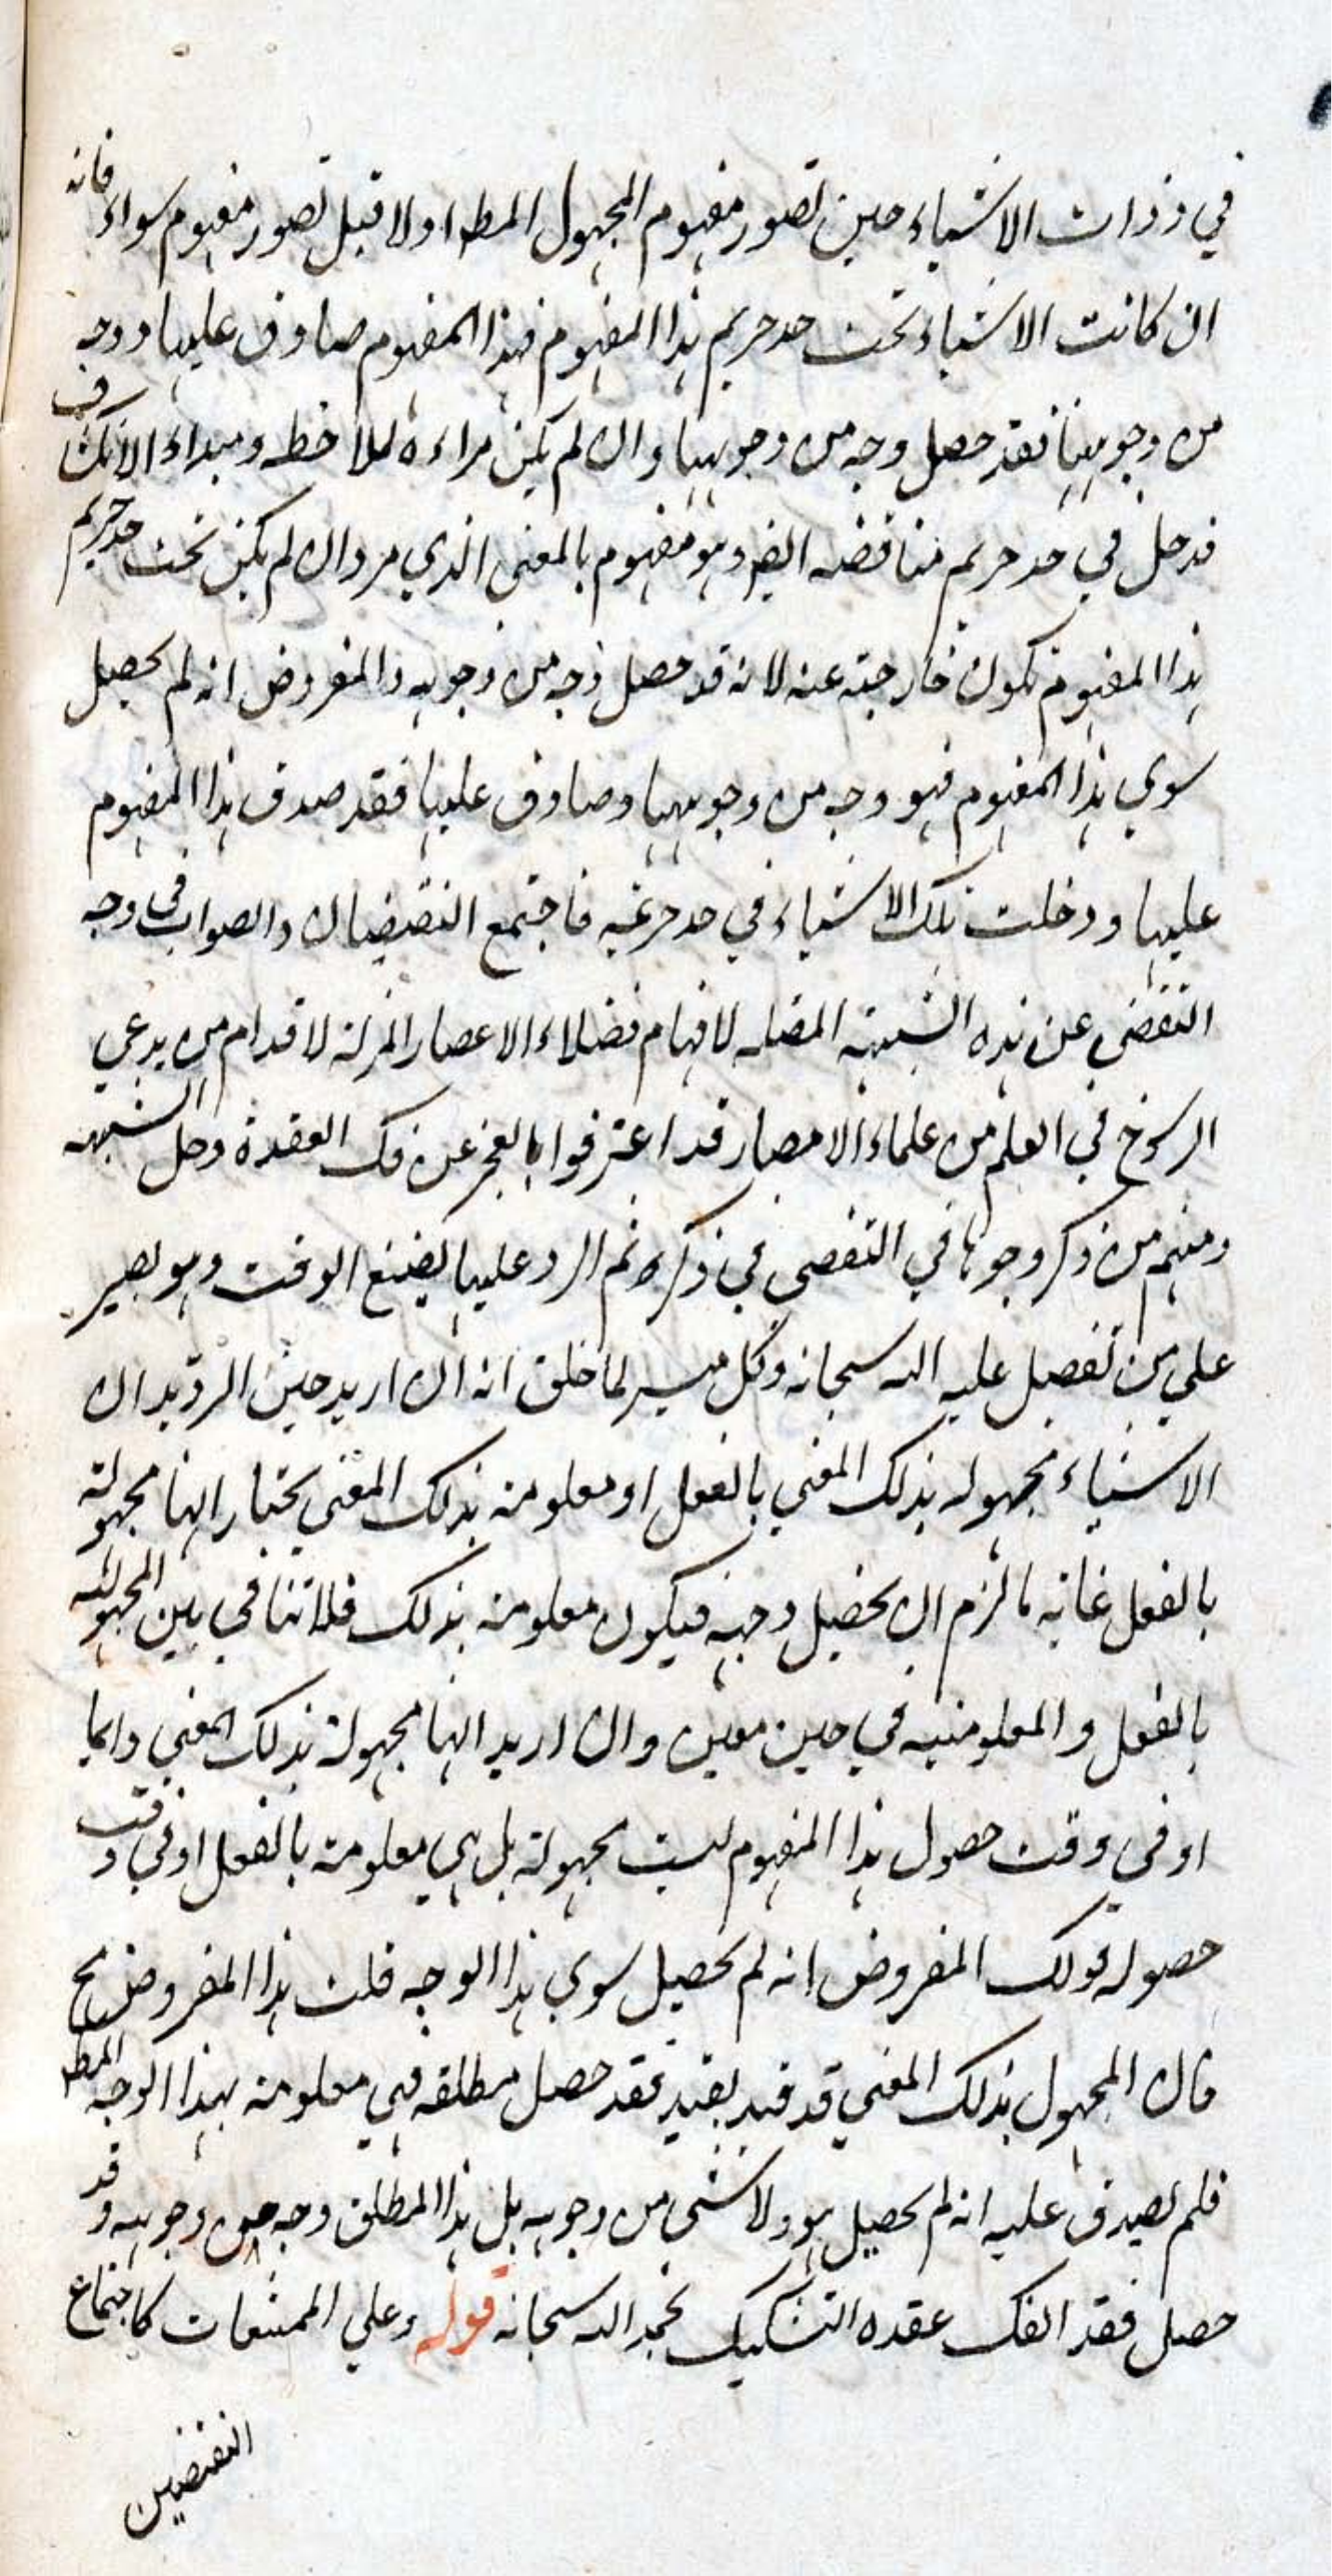 في ذرات الاشياء حين تصور مفهوم المجهول المط اولا قبل تصور مفهوم سواء فانه
ان كانت الاشياء تحت حد حريم هذا المفهوم فهذا المفهوم صادق عليها ووجه
من وجوهها فقد حصل وجه من وجوهها وان لم يكن مراءة للملاحظه ومبداء الانكشاف
فدخل في حد حريم مناقضه ايضا وهو مفهوم بالمعنى الذي مر وان لم يكن تحت حد حريم
هذا المفهوم تكون خارجته عنه لانه قد حصل وجه من وجوهه والمفروض انه لم يحصل
سوي هذا المفهوم فهو وجه من وجوهها وصادق عليها فقد صدق هذا المفهوم
عليها ودخلت تلك الاشياء في حد حريمه فاجتمع النقيضان والصواب في وجه
التفصي عن هذه الشبهة المضله لافهام فضلاء الاعصار المزلة لاقدام من يدعي
الرسوخ في العلم من علماء الامصار قد اعترفوا بالعجز عن فك العقدة وحل الشبهه
ومنهم من ذكر وجوها في التفصي في ذكره ثم الرد عليها يضيع الوقت وهو يصير
علي من تفضل عليه الله سبحانه وكل ميسر لما خلق انه ان اريد حين الترديد ان
الاشياء مجهوله بذلك المعني بالفعل او معلومة بذلك المعني يختار انها مجهولة
بالفعل غاية ما لزم ان يحصل وجهه فيكون معلومة بذلك فلا تنافي بين المجهولية
بالفعل والمعلومية في حين معين وان اريد انها مجهولة بذلك المعني دايما
او في وقت حصول هذا المفهوم ليست مجهولة بل هي معلومة بالفعل او في وقت
حصوله قولك المفروض انه لم يحصل سوي هذا الوجه قلت هذا المفروض مح
فان المجهول بذلك المعني قد قيد بقيد فقد حصل مطلقه فهي معلومة بهذا الوجه المط
فلم يصدق عليه انه لم يحصل هو ولا شئ من وجوهه بل هذا المطلق وجه من وجوهه وقد
حصل فقد انفك عقده التشكيك بحمد الله سبحانه قوله وعلي الممتنعات كاجتماع
النقيضين